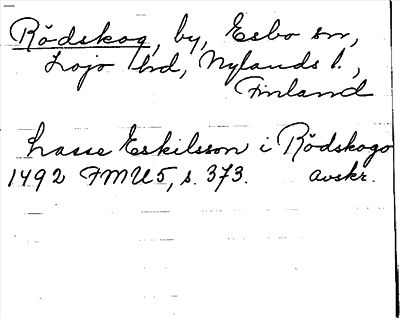 Rödskog, by, Esbo sn,
Lojo hd, Nylands l.,
Finland
Lasse Eskilsson i Rödskogo
1492 FMU 5, s. 373. avskr.